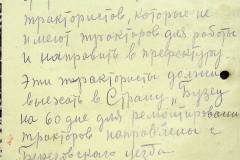 трактористов, которые не
имеют тракторов для работы
и направить в префектуру
Эти трактористы должны
выехать в Страму „Бузеу
на 60 дне для ремонтировани
тракторов направлены с